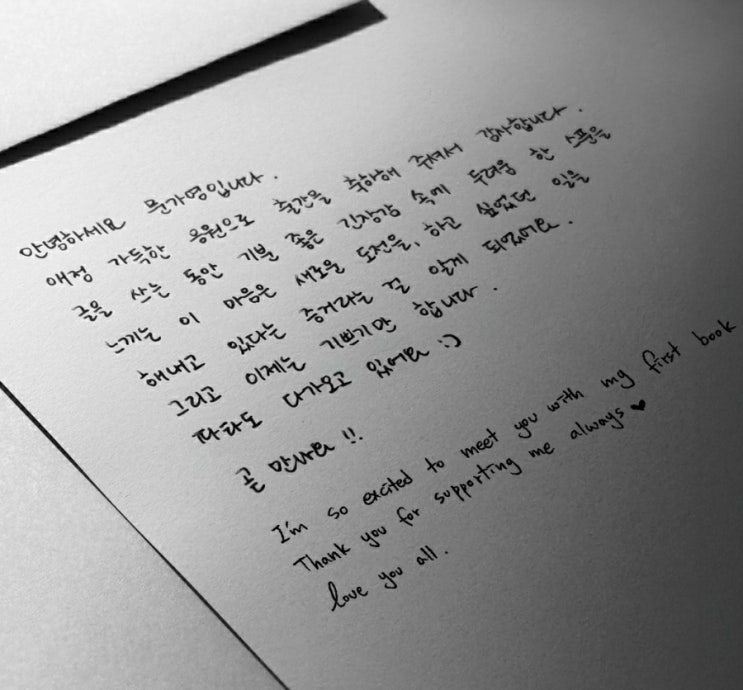 안녕하세요 문가영입니다.
애정 가득한 응원으로 출간을 축하해 주셔서 감사합니다.
글을 쓰는 동안 기분 좋은 긴장감 속에 두려움 한 스푼을
느끼는 이 마음은 새로운 도전을, 하고 싶었던 일을
해내고 있다는 증거라는 걸 알게 되었어요.
그리고 이제는 기쁘기만 합니다.
파타도 다가오고 있어요 :)
곧 만나요 !!
I'm so excited to meet you with my first book
Thank you for supporting me always ♥
love you all.